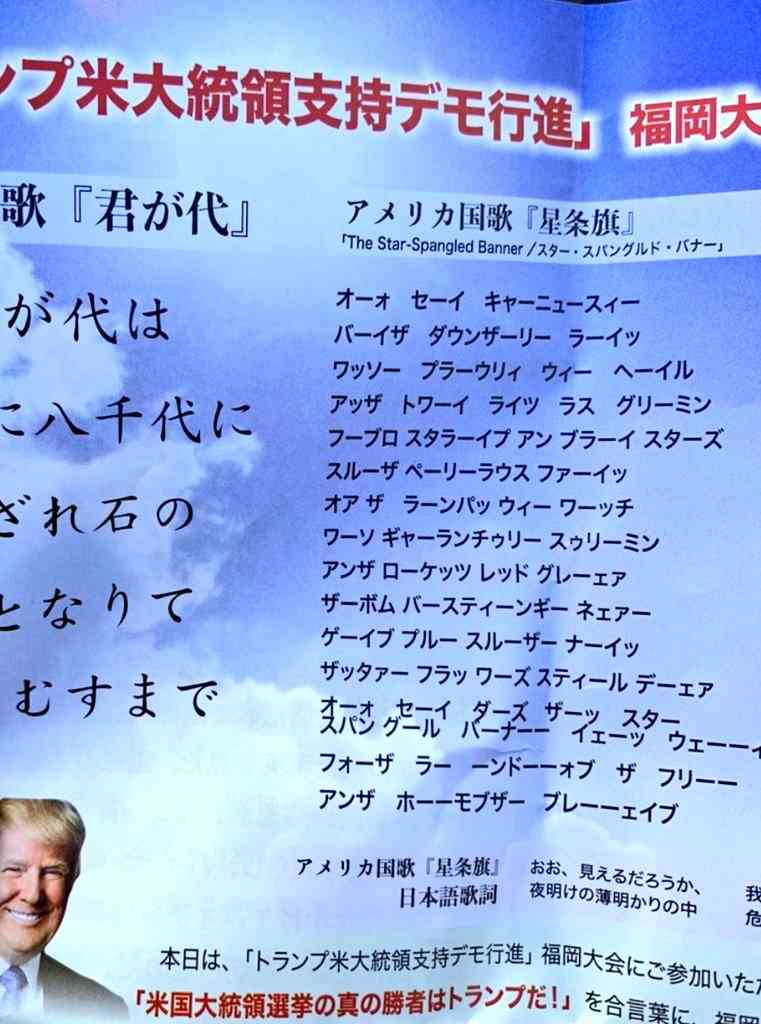 ンプ米大統領支持デモ行進」 福岡大
歌『君が代』
が代は
に八千代に
ざれ石の
となりて
むすまで
アメリカ国歌『星条旗』
「The Star-Spangled Banner /スター・スパングルド・バナー」
オーォ セーイ キャーニュースィー
バーイザ ダウンザーリー ラーイッ
ワッソー プラーウリィ ウィー ヘーイル
アッザ トワーイ ライツ ラス グリーミン
フーブロ スタラーイプ アン ブラーイ スターズ
スルーザ ペーリーラウス ファーイッ
オア ザ ラーンパッ ウィー ワーッチ
ワーソ ギャーランチゥリー スゥリーミン
アンザ ローケッツ レッド グレーェア
ザーボム バースティーンギー ネェアー
ゲーイブ プルー スルーザー ナーイッ
ザッタァー フラッ ワーズ スティール デーェア
オーォ セーイ ダーズ ザーツ スター
スパン グール バーナーー イェーツ ウェーーィ
フォーザ ラー ーンドーーォブ ザ フリーー
アンザ ホーーモブザー ブレーーェイブ
アメリカ国歌『星条旗』
日本語歌詞
おお、見えるだろうか、
夜明けの薄明かりの中
我
危
本日は、「トランプ米大統領支持デモ行進」福岡大会にご参加いただ
「米国大統領選挙の真の勝者はトランプだ!」を合言葉に、福岡